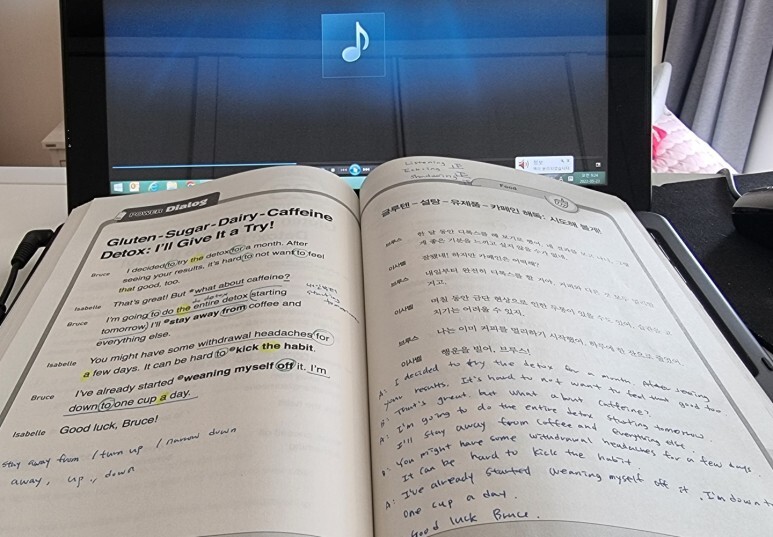 POWER Dialog
Gluten-Sugar-Dairy-Caffeine
Detox: I'll Give It a Try!
Bruce I decided to try the detox for a month. After
seeing your results, it's hard to not want to feel
that good, too.
Isabelle That's great! But what about caffeine?
Bruce I'm going to do the entire detox starting
tomorrow) I'll stay away from coffee and
everything else.
Isabelle You might have some withdrawal headaches for
a few days. It can be hard to kick the habit.
Bruce I've already started weaning myself off it. I'm
down to one cup a day.
Isabelle Good luck, Bruce!
stay away from / turn up / narrow down
away, up, down
Food
글루텐-설탕-유제품-카페인 해독: 시도해 볼게!
브루스
이사벨 잘됐네! 하지만 카페인은 어떡해?
브루스 내일부터 완전히
이사벨 며칠 동안 금단 현상으로 인한 두통이 있을 수도 있어.
브루스 나는 이미 커피를 멀리하기 시작했어.
이사벨 행운을 빌어, 브루스!
A: I decided to try the detox for a month. After seeing
your results. It's hard to not want to feel that good too.
B: That's great but what about caffeine?
A: I'm going to do the entire detox starting tomorrow.
I'll stay away from coffee and everything else.
B: You might have some withdrawal headaches for a few days
It can be hard to kick the habit.
A: I've already started weaning myself off it. I'm down to
one cup a day.
Good luck Bruce.